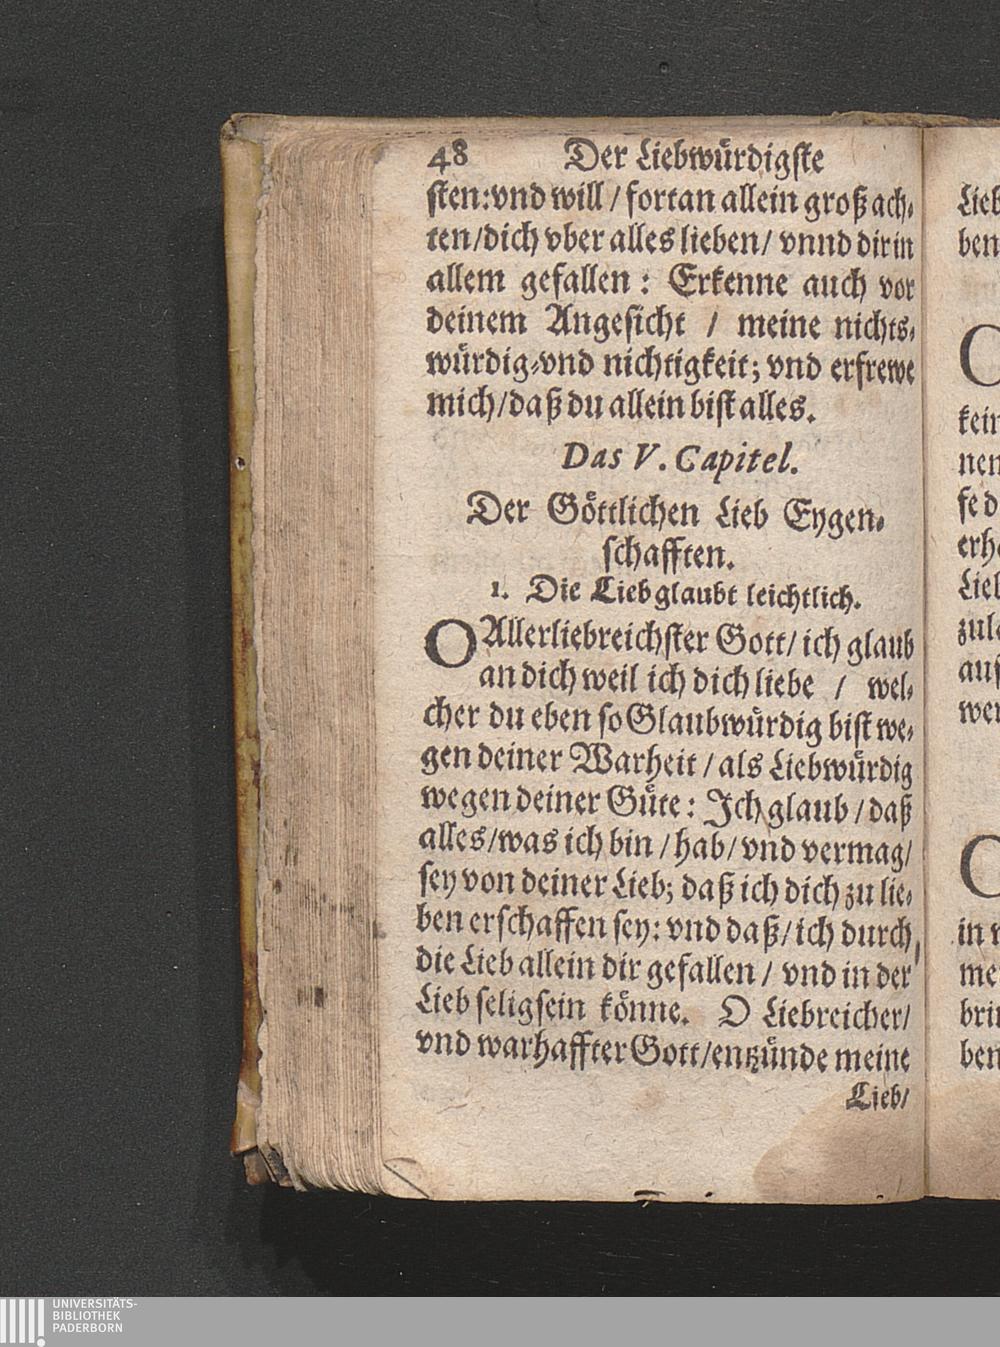 48 Der Liebwürdigste
sten:vnd will / fortan allein groß ach-
ten/dich vber alles lieben/ vnnd dir in
allem gefallen : Erkenne auch vor
deinem Angesicht / meine nichts-
würdig-vnd nichtigkeit; vnd erfrewe
mich/daß du allein bist alles.
Das V. Capitel.
Der Göttlichen Lieb Eygen-
schafften.
1. Die Lieb glaubt leichtlich.
O Allerliebreichster Gott/ ich glaub
an dich weil ich dich liebe / wel-
cher du eben so Glaubwürdig bist we-
gen deiner Warheit / als Liebwürdig
wegen deiner Güte: Ich glaub / daß
alles/was ich bin / hab/ vnd vermag/
sey von deiner Lieb; daß ich dich zu lie-
ben erschaffen sey: vnd daß/ ich durch
die Lieb allein dir gefallen / vnd in der
Lieb selig sein könne. O Liebreicher/
vnd warhaffter Gott/entzünde meine
Lieb/
Lieb
ben
O
kein
nen
fe d
erh
Lieb
zule
auf
wer
O
in
me
brin
ben
UNIVERSITÄTS-
BIBLIOTHEK
PADERBORN